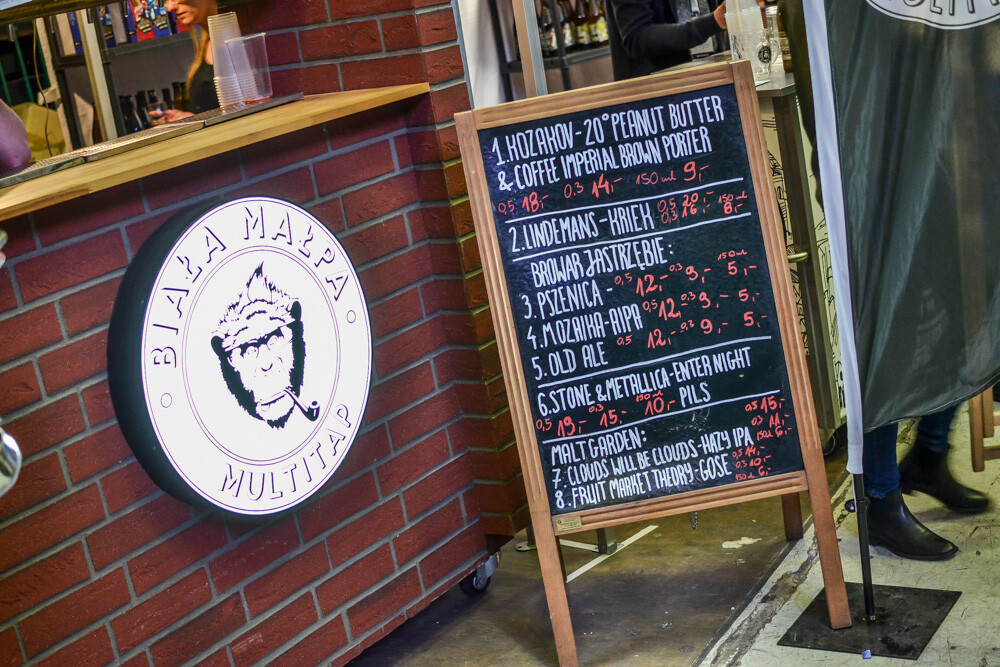 BIAŁA MAŁPA
MULTITAP
1. KOZAKOV - 20° PEANUT BUTTER
& COFFEE IMPERIAL BROWN PORTER
0,5 18,- 0,3 14,- 150 ml 9,-
2. LINDEMANS - KRIEK 0,5 20,- 150 ml
0,3 16,- 8,-
BROWAR JASTRZĘBIE:
3. PSZENICA - 0,5 12,- 0,3 9,- 150 ml 5,-
4. MOZAIKA - AIPA 0,5 12,- 0,3 9,- 5,-
5. OLD ALE 0,5 12,- 0,3 9,- 5,-
6. STONE & METALLICA - ENTER NIGHT
0,5 19,- 0,3 15,- 150 ml 10,- PILS
MALT GARDEN: 0,5 15,-
7. CLOUDS WILL BE CLOUDS - HAZY IPA 0,3 11,- 150 ml 6,-
8. FRUIT MARKET THEORY: GOSE 0,5 14,- 0,3 10,- 150 ml 6,-